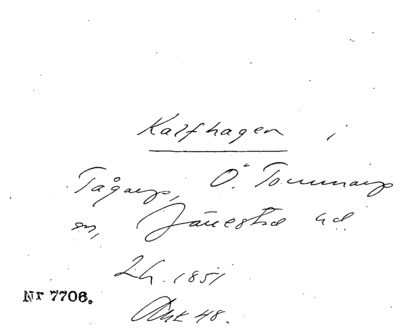 Kalfhagen i
Tågarp, Ö. Tommarp
sn, Järrestad hd.
Lh. 1851
Nr 7706.
48.